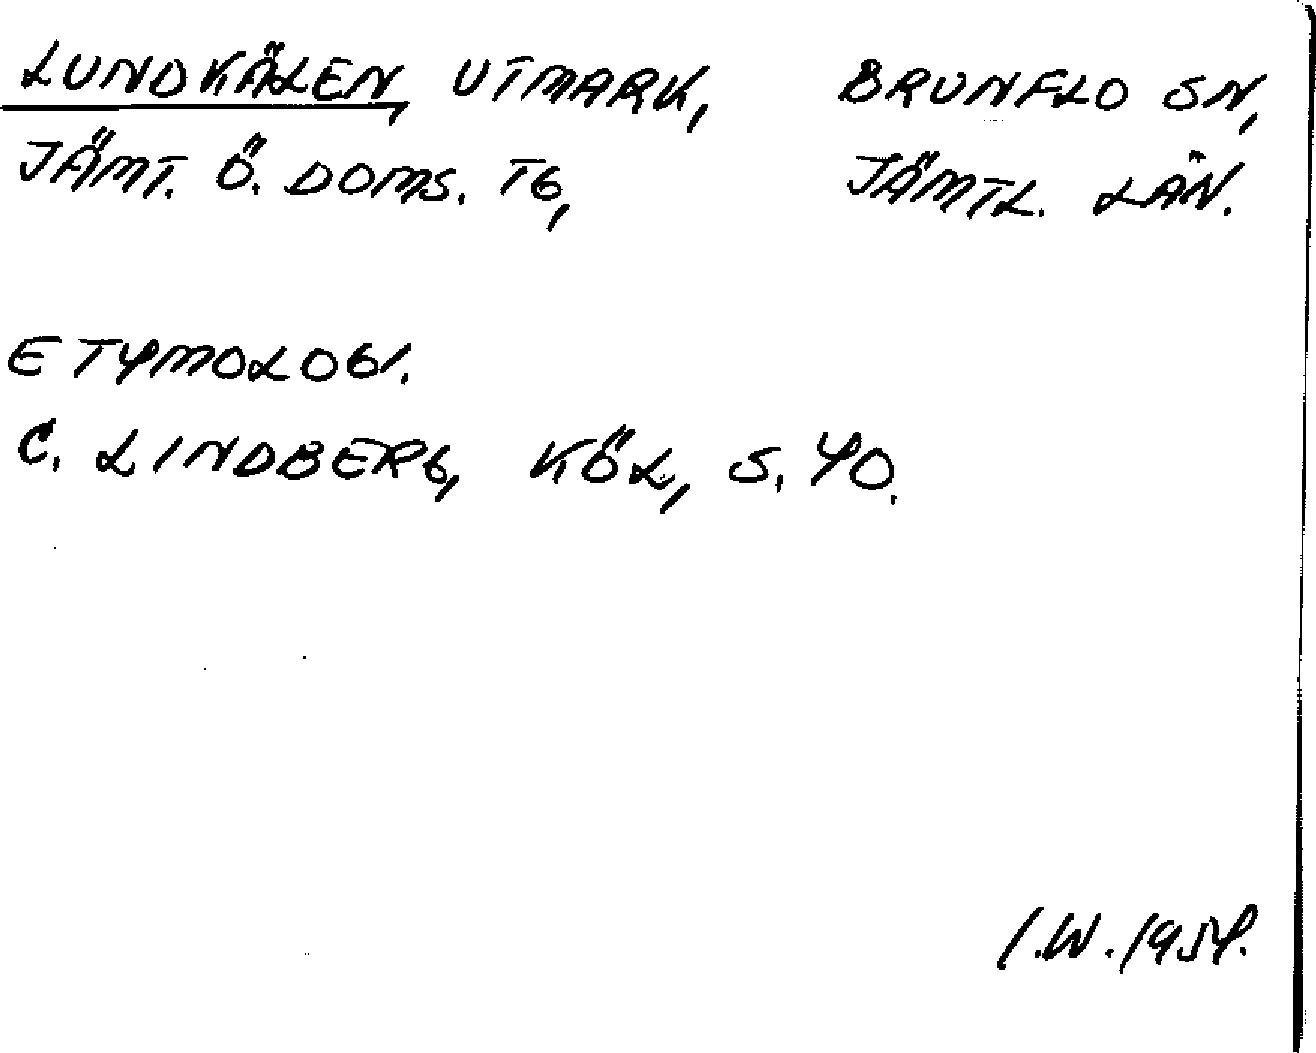 LUNDKÄLEN, UTMARK, BRUNFLO SN,
JÄMT. Ö. DOMS. TG, JÄMTL. LÄN.
ETYMOLOGI.
C. LINDBERG, KÖL, S. 40.
I.W. 1954.